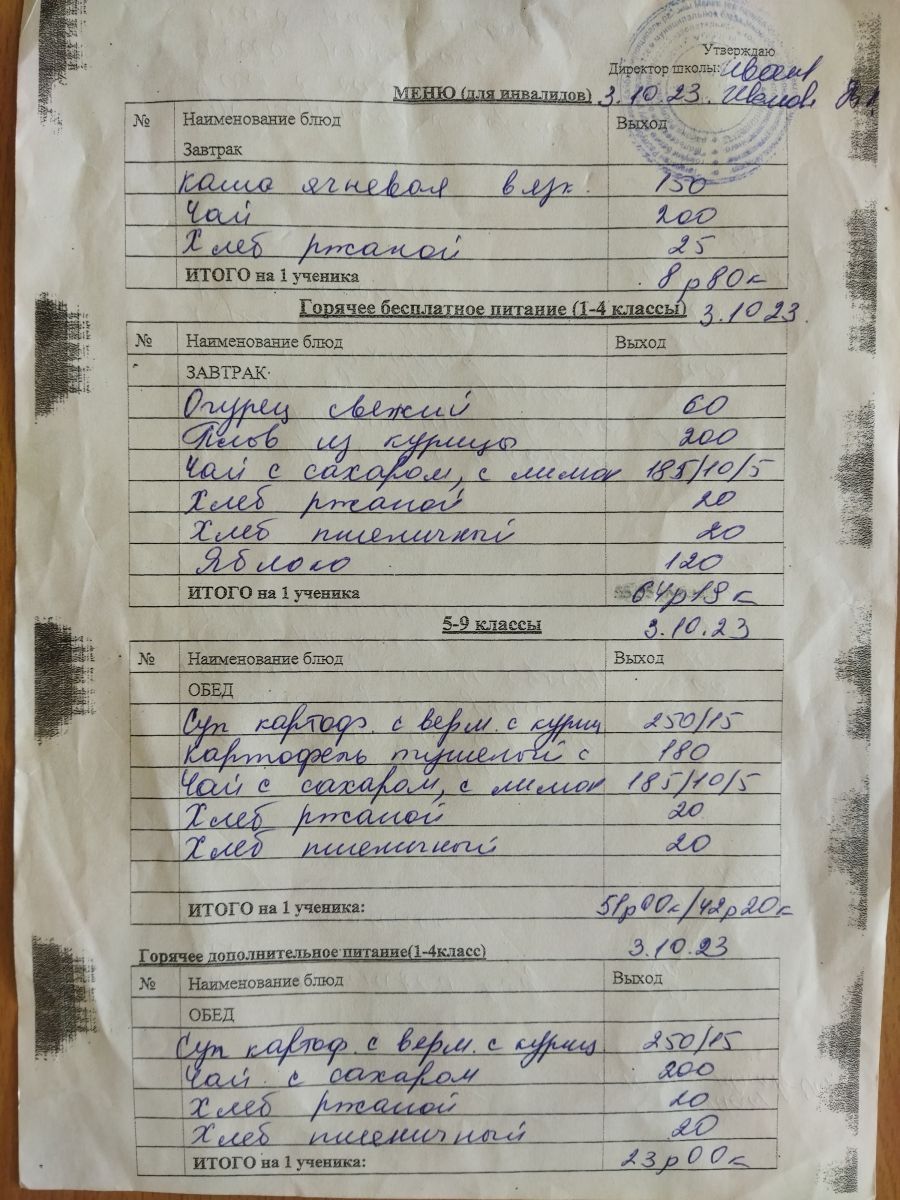 Утверждаю
Директор школы: Иванов
МЕНЮ (для инвалидов) 3.10.23. Иванов
№ Наименование блюд Выход
Завтрак
Каша ячневая вязк. 150
Чай 200
Хлеб ржаной 25
ИТОГО на 1 ученика 8р80к
Горячее бесплатное питание (1-4 классы) 3.10.23.
№ Наименование блюд Выход
ЗАВТРАК
Огурец свежий 60
Плов из курицы 200
Чай с сахаром, с лимон 185/10/5
Хлеб ржаной 20
Хлеб пшеничный 20
Яблоко 120
ИТОГО на 1 ученика 64р19к
5-9 классы 3.10.23
№ Наименование блюд Выход
ОБЕД
Суп картоф. с верм. с куриц 250/15
Картофель тушеный с 180
Чай с сахаром, с лимон 185/10/5
Хлеб ржаной 20
Хлеб пшеничный 20
ИТОГО на 1 ученика: 51р00к/42р20к
Горячее дополнительное питание(1-4класс) 3.10.23
№ Наименование блюд Выход
ОБЕД
Суп картоф. с верм. с куриц 250/15
Чай с сахаром 200
Хлеб ржаной 20
Хлеб пшеничный 20
ИТОГО на 1 ученика: 23р00к